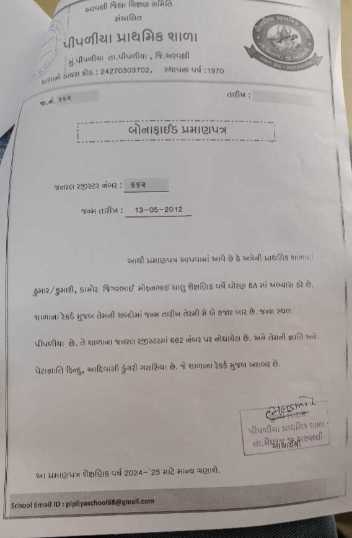 અરવલ્લી જિલ્લા શિક્ષણ સમિતિ
સંચાલિત
પીપળીયા પ્રાથમિક શાળા
મુ.પીપળીયા તા.મેઘરજ, જિ.અરવલ્લી
શાળાનો ડાયસ કોડ : 24270303702, સ્થાપના વર્ષ :1970
જા.નં. ૬૬૨
તારીખ :
બોનાફાઈડ પ્રમાણપત્ર
જનરલ રજીસ્ટર નંબર : ૬૬૨
જન્મ તારીખ : 13-05-2012
આથી પ્રમાણપત્ર આપવામાં આવે છે કે અત્રેની પ્રાથમિક શાળાના
કુમાર/કુમારી, ડામોર જિગરભાઈ મોહનભાઈ ચાલુ શૈક્ષણિક વર્ષે ધોરણ 8A માં અભ્યાસ કરે છે.
શાળાના રેકર્ડ મુજબ તેમની શબ્દોમાં જન્મ તારીખ તેરમી મે બે હજાર બાર છે. જન્મ સ્થળ
પીપળીયા છે. તે શાળાના જનરલ રજીસ્ટરમાં 662 નંબર પર નોંધાયેલ છે. અને તેમની જ્ઞાતિ અને
પેટાજ્ઞાતિ હિન્દુ, આદિવાસી ડુંગરી ગરાસિયા છે. જે શાળાના રેકર્ડ મુજબ બરાબર છે.
પીપળીયા પ્રાથમિક શાળા
આ પ્રમાણપત્ર શૈક્ષણિક વર્ષ 2024-'25 માટે માન્ય ગણાશે.
School Email ID : pipliyaschool68@gmail.com